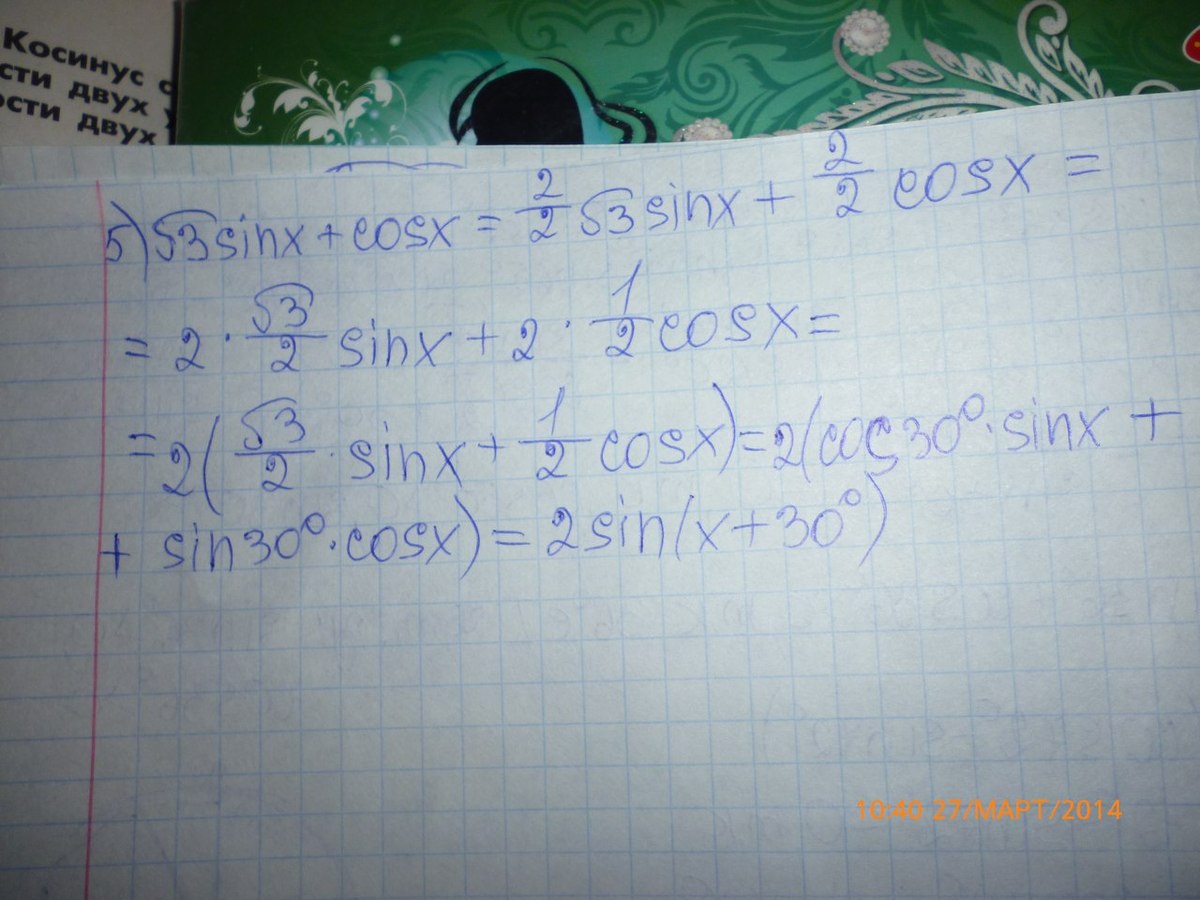 Косинус
сти двух
ости двух
5) √3 sinx + cosx = 2/2 √3 sinx + 2/2 cosx =
= 2 · √3/2 sinx + 2 · 1/2 cosx =
= 2( √3/2 · sinx + 1/2 cosx) = 2(cos30° · sinx +
+ sin30° · cosx) = 2sin(x+30°)
10:40 27/МАРТ/2014